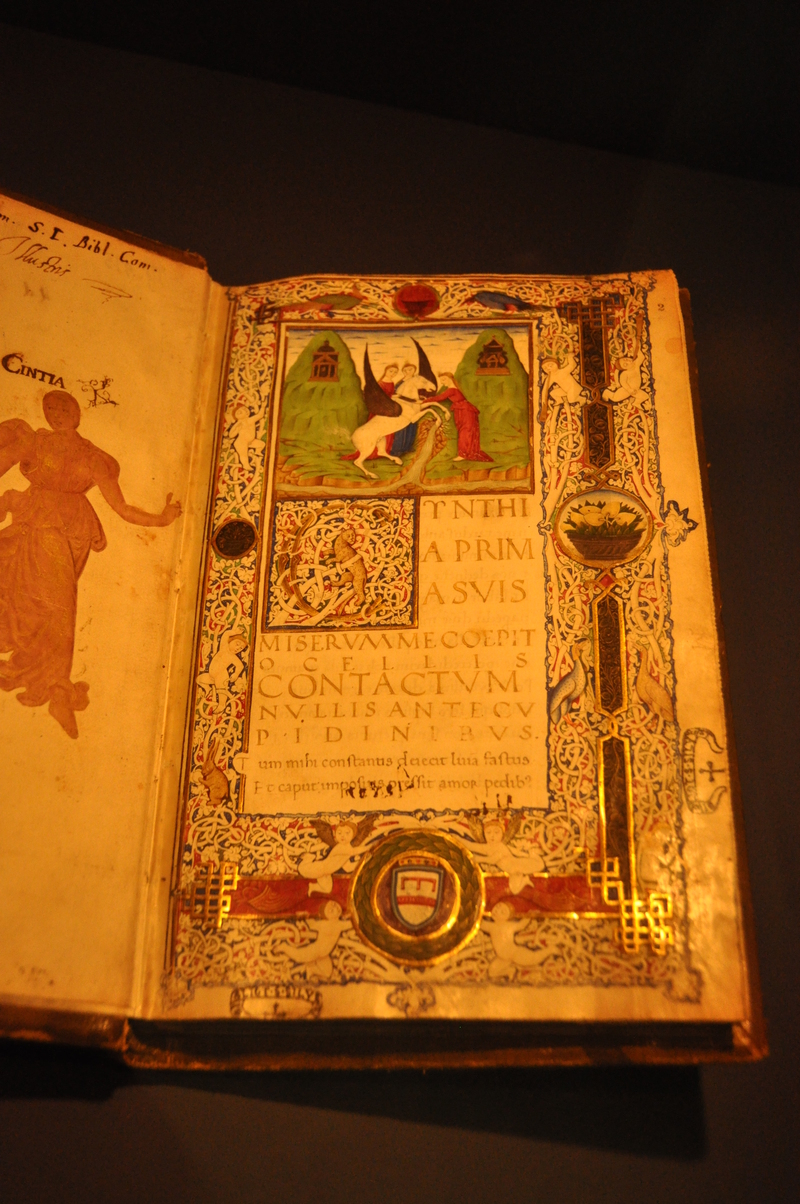 S. I. Bibl. Com.
CINTIA
2
YNTHI
A PRIM
A SVIS
MISERVM ME COEPIT
OCELLIS
CONTACTVM
NVLLIS ANTE CV
PIDINIBVS.
Tum mihi constantis deiecit lumina fastus
Et caput impositis pressit amor pedib;